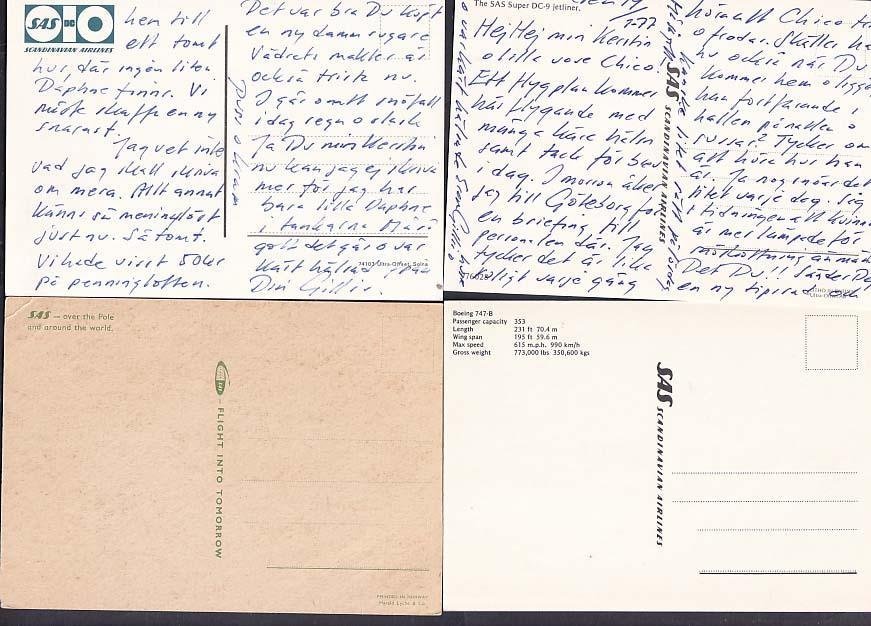 SAS DC 10
SCANDINAVIAN AIRLINES
hem till
ett tomt
hus, där ingen liten
Daphne finns. Vi
måste skaffa en ny
snarast.
Jag vet inte
vad jag skall skriva
om mera. Allt annat
känns så meningslöst
just nu. Så tomt.
Vi hade visst 50kr
på penninglotten.
Puss o kram
Det var bra Du köpt
en ny dammsugare
Vädrets makter är
också trista nu.
I går omtt snöfall
i dag regn o slask
Ja Du min Kerstin
nu kan jag ej skriva
mer för jag har
bara lilla Daphne
i tankarna Må så
gott det går o var
kärt hälsad från
Din Gillis.
74103 Ultra-Offset, Solna
The SAS Super DC-9 jetliner.
1-77
Hej Hej min Kerstin
o lilla vove Chico.
Ett flygplan kommer
här flygande med
många kära hälsn
samt tack för bau
i dag. I morron åker
jag till Göteborg för
en briefing till
personalen där. Jag
tycker det är lika
roligt varje gång
SAS SCANDINAVIAN AIRLINES
höra att Chico
Skäller han
nu också när Du
kommer hem o ligger
han fortfarande i
hallen på natten o
sussar? Tycker om
att höra hur han
är. Ja nog snöar det
litet varje dag. Såg
i tidningen att kvinnan
är mer lämpade för
än män
Det Du!! Sänder Dej
en ny tipsrad
SAS – over the Pole
and around the world.
SAS – FLIGHT INTO TOMORROW
PRINTED IN NORWAY
Harald Lyche & Co.
Boeing 747-B
Passenger capacity 353
Length 231 ft 70.4 m
Wing span 195 ft 59.6 m
Max speed 615 m.p.h. 990 km/h
Gross weight 773,000 lbs 350,600 kgs
SAS SCANDINAVIAN AIRLINES